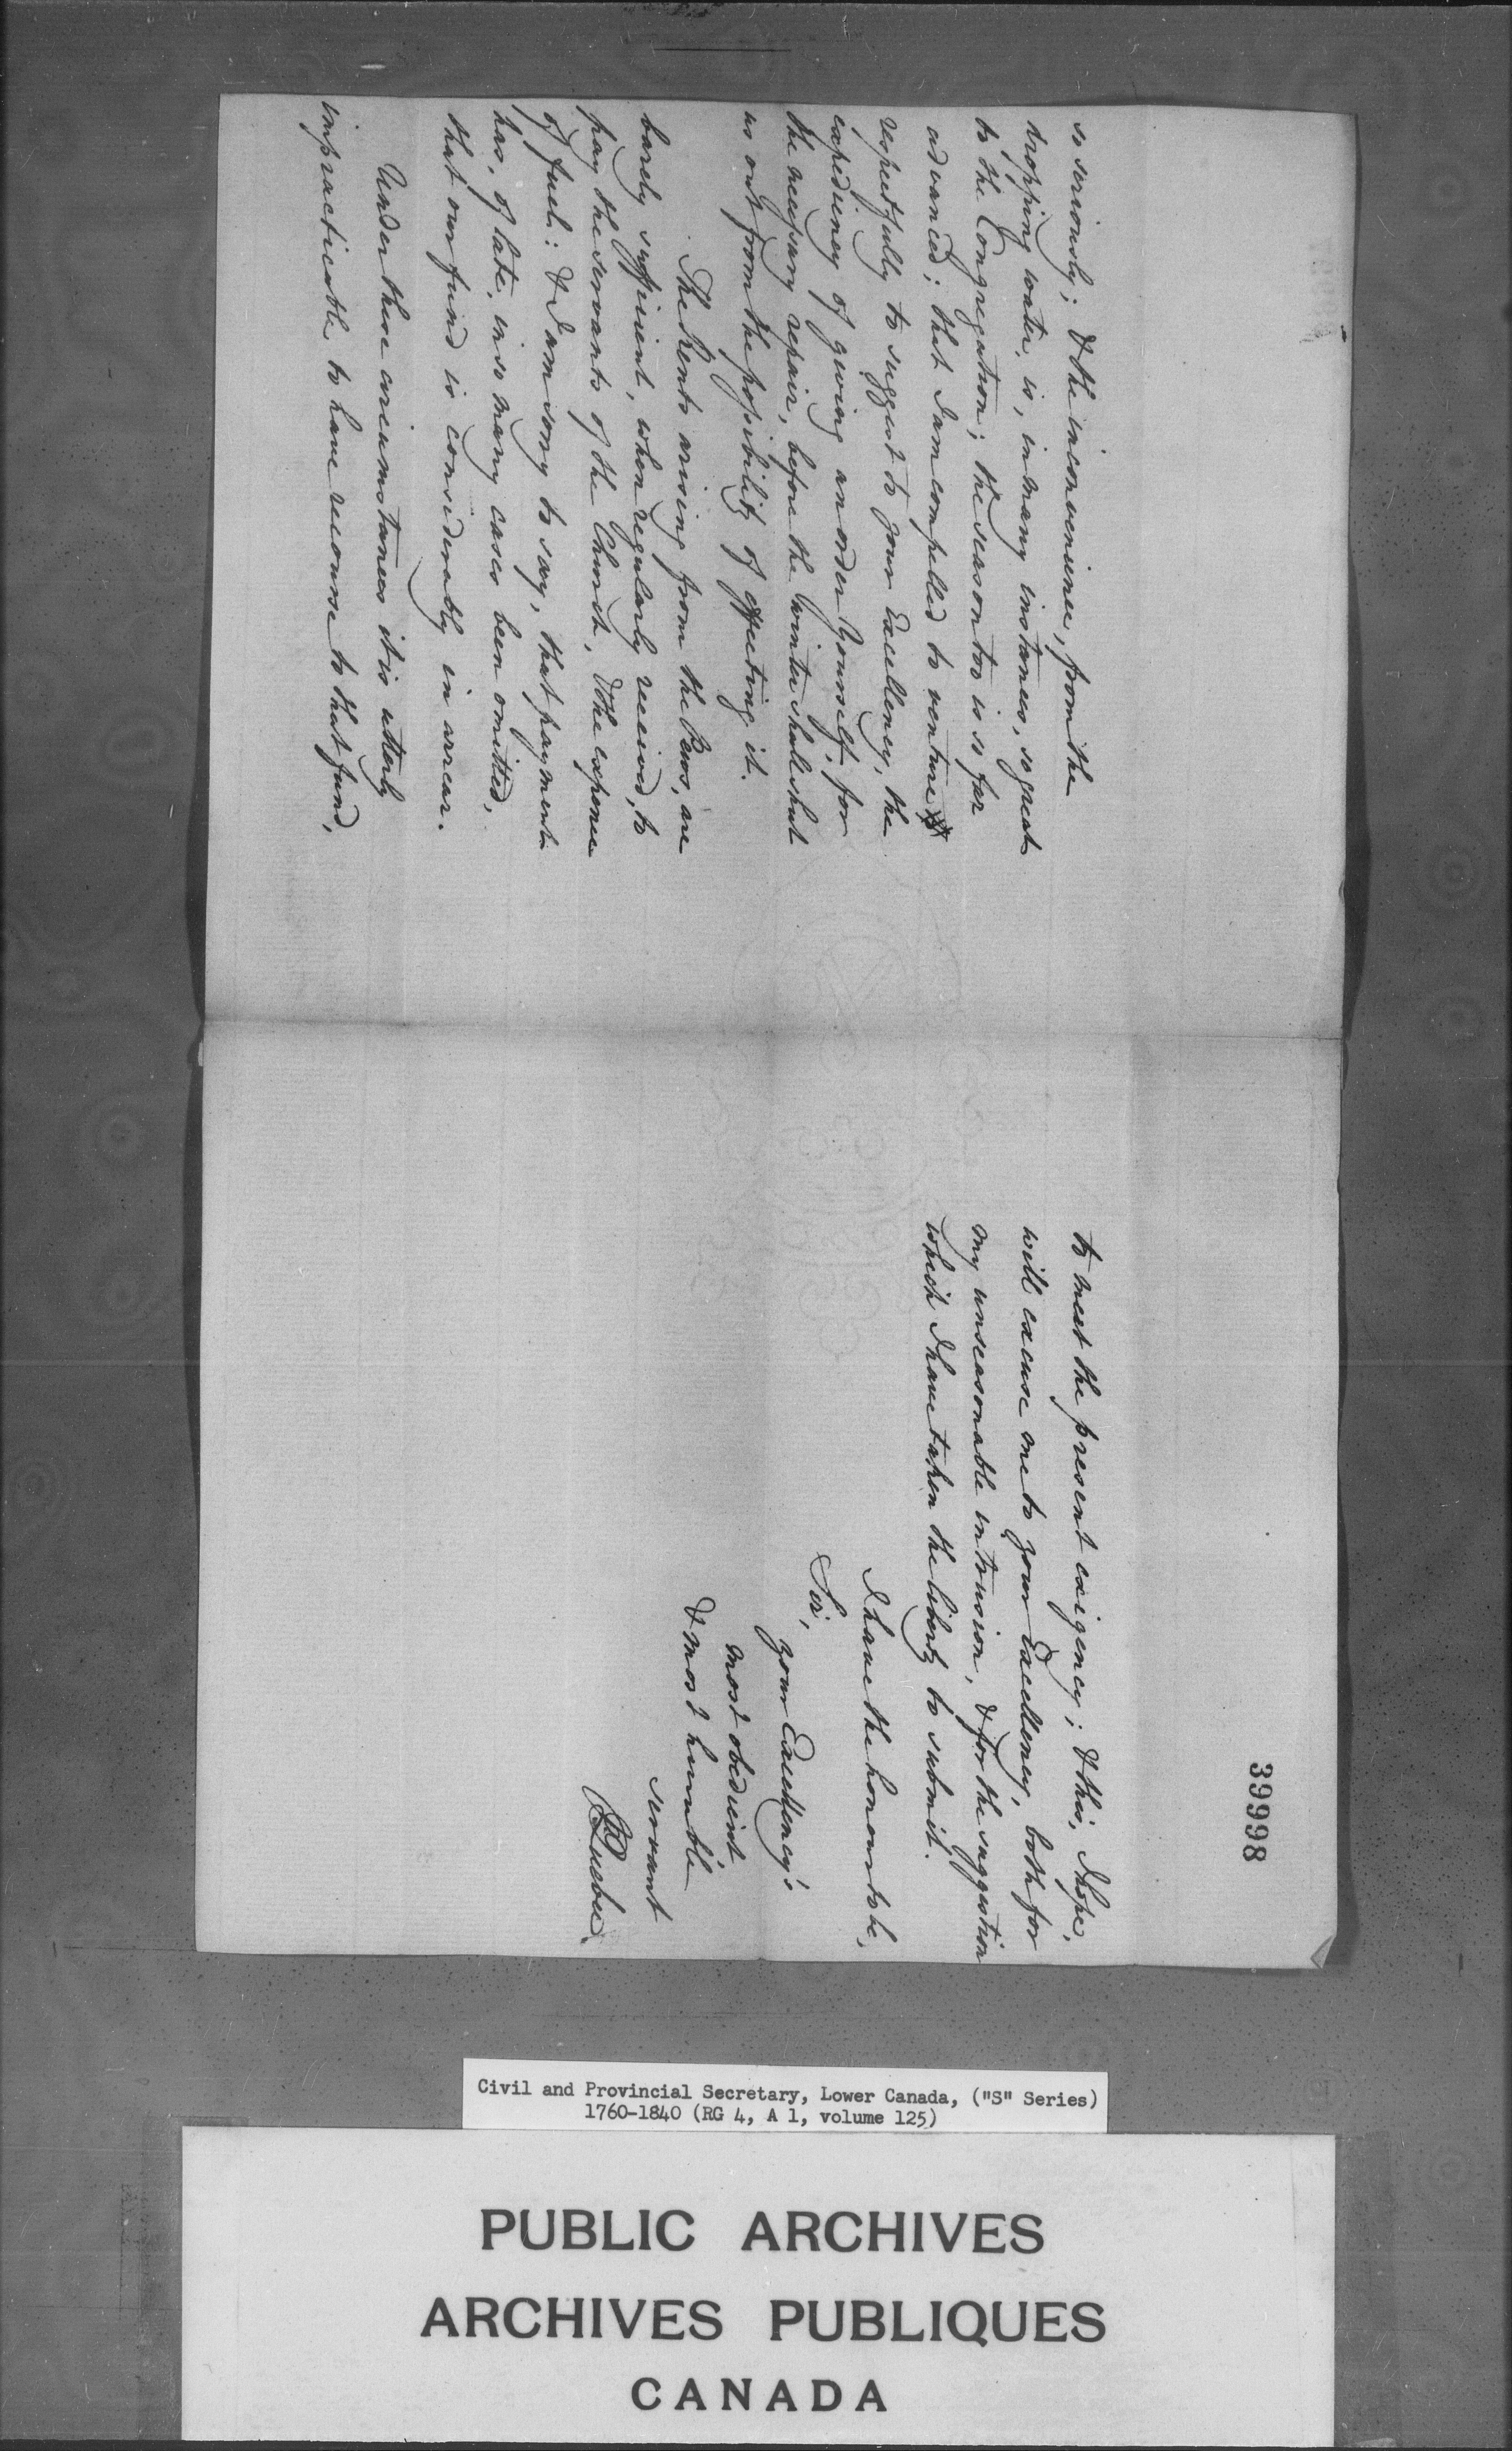 so seriously; & the inconvenience, from the
dropping water, is, in many instances, so great
to the Congregation; the season too is so far
advanced; that I am compelled to venture
respectfully to suggest to your Excellency, the
expediency of giving an order Yourself, for
the necessary repair, before the winter shall shut
us out from the possibility of effecting it.
The Rents arising from the Pews, are
barely sufficient, when regularly received, to
pay the servants of the Church, & the expence
of fuel: & I am sorry to say, that payment
has, of late, in so many cases been omitted,
that our fund is considerably in arrear.
Under these circumstances it is utterly
impracticable to have recourse to that fund,
39998
to meet the present exigency; & this, I hope,
will excuse me to your Excellency, both for
my unseasonable intrusion, & for the suggestion
which I have taken the liberty to submit.
I have the honour to be,
Sir,
your Excellency's
most obedient
& most humble
servant
J. Quebec.
Civil and Provincial Secretary, Lower Canada, ("S" Series)
1760-1840 (RG 4, A 1, volume 125)
PUBLIC ARCHIVES
ARCHIVES PUBLIQUES
CANADA